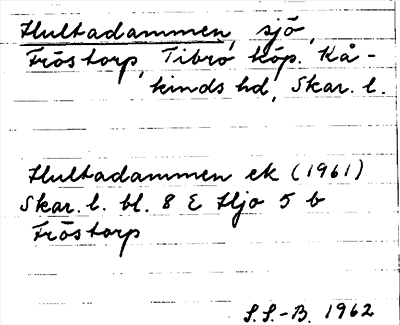 Hultadammen, sjö,
Fröstorp, Tibro köp. Kå-
kinds hd, Skar. l.
Hultadammen ek (1961)
Skar. l. bl. 8 E Hjo 5 b
Fröstorp
S.S.-B. 1962